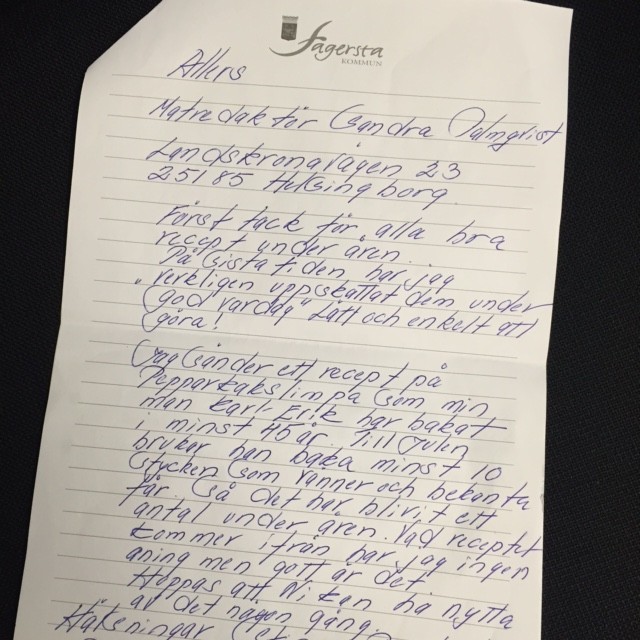 Fagersta
KOMMUN
Allers
Matredaktör Sandra Palmqvist
Landskronavägen 23
25185 Helsingborg
Först tack för alla bra
recept under åren.
På sista tiden har jag
verkligen uppskattat dem under
"God vardag" Lätt och enkelt att
göra!
Jag sänder ett recept på
Pepparkakslimpa som min
man Karl-Erik har bakat
i minst 45 år. Till Julen
brukar han baka minst 10
stycken som vänner och bekanta
får. Så det har blivit ett
antal under åren. Vad receptet
kommer ifrån har jag ingen
aning men gott är det
Hoppas att Ni kan ha nytta
av det någon gång.
Hälsningar